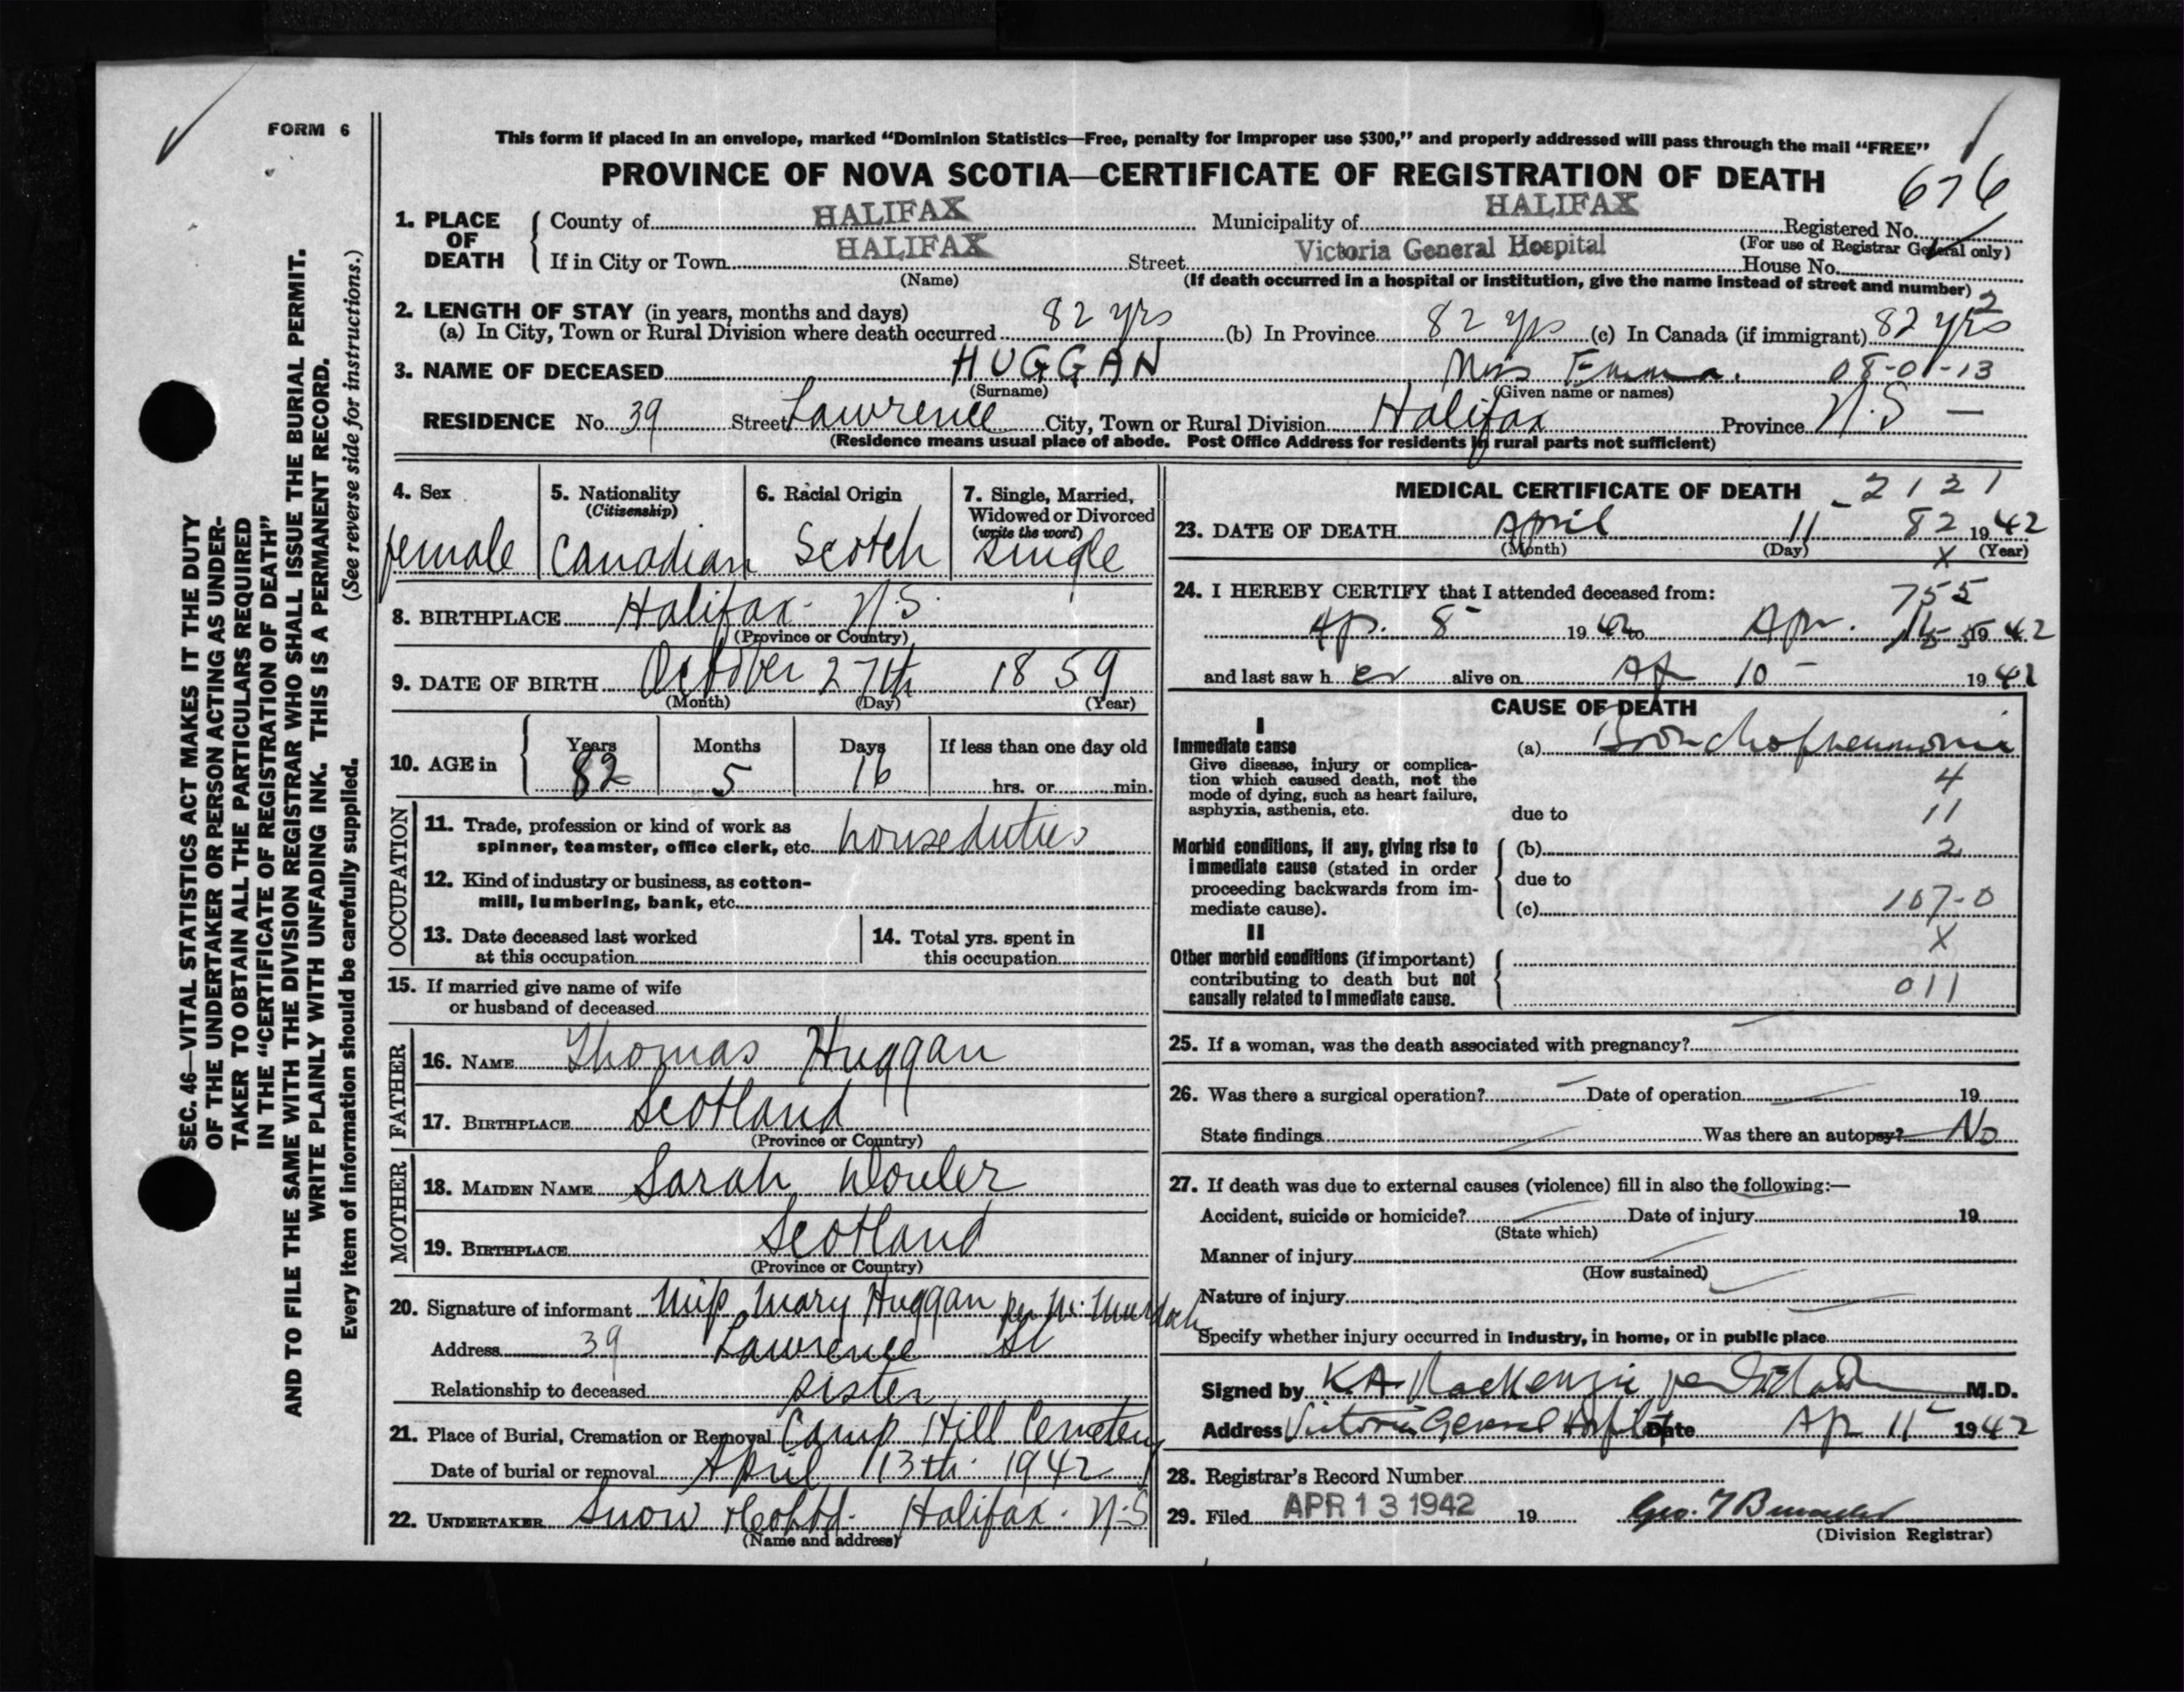 FORM 6
This form if placed in an envelope, marked “Dominion Statistics—Free, penalty for improper use $300,” and properly addressed will pass through the mail “FREE”
PROVINCE OF NOVA SCOTIA—CERTIFICATE OF REGISTRATION OF DEATH
676
1. PLACE OF DEATH
County of HALIFAX Municipality of HALIFAX Registered No.
(For use of Registrar General only)
If in City or Town HALIFAX Street Victoria General Hospital House No.
(Name) (If death occurred in a hospital or institution, give the name instead of street and number)
2
2. LENGTH OF STAY (in years, months and days)
(a) In City, Town or Rural Division where death occurred 82 yrs (b) In Province 82 yrs (c) In Canada (if immigrant) 82 yrs
3. NAME OF DECEASED HUGGAN Miss Emma. 08-01-13
(Surname) (Given name or names)
RESIDENCE No. 39 Street Lawrence City, Town or Rural Division Halifax Province N.S —
(Residence means usual place of abode. Post Office Address for residents in rural parts not sufficient)
4. Sex
female
5. Nationality
(Citizenship)
Canadian
6. Racial Origin
Scotch
7. Single, Married,
Widowed or Divorced
(write the word)
single
8. BIRTHPLACE Halifax - N.S.
(Province or Country)
9. DATE OF BIRTH October 27th 1859
(Month) (Day) (Year)
10. AGE in
Years Months Days If less than one day old
82 5 16 hrs. or min.
OCCUPATION
11. Trade, profession or kind of work as
spinner, teamster, office clerk, etc. house duties
12. Kind of industry or business, as cotton-
mill, lumbering, bank, etc.
13. Date deceased last worked
at this occupation
14. Total yrs. spent in
this occupation
15. If married give name of wife
or husband of deceased
FATHER
16. NAME Thomas Huggan
17. BIRTHPLACE Scotland
(Province or Country)
MOTHER
18. MAIDEN NAME Sarah
19. BIRTHPLACE Scotland
(Province or Country)
20. Signature of informant Miss Mary Huggan per
Address 39 Lawrence St
Relationship to deceased sister
21. Place of Burial, Cremation or Removal Camp Hill Cemetery
Date of burial or removal April 13th 1942
22. UNDERTAKER Snow & Co Ltd. Halifax. N.S
(Name and address)
MEDICAL CERTIFICATE OF DEATH - 2121
23. DATE OF DEATH April 11 82 1942
(Month) (Day) X (Year)
24. I HEREBY CERTIFY that I attended deceased from: 755
Ap. 8 1942 to Apr. 1942
and last saw her alive on Ap 10 - 1942
CAUSE OF DEATH
I
Immediate cause
Give disease, injury or complica-
tion which caused death, not the
mode of dying, such as heart failure,
asphyxia, asthenia, etc.
(a) Bronchopneumonia
4
due to 11
Morbid conditions, if any, giving rise to
immediate cause (stated in order
proceeding backwards from im-
mediate cause).
(b) 2
due to
(c) 107-0
II
X
Other morbid conditions (if important)
contributing to death but not
causally related to immediate cause.
011
25. If a woman, was the death associated with pregnancy?
26. Was there a surgical operation? Date of operation 19
State findings Was there an autopsy? No
27. If death was due to external causes (violence) fill in also the following:—
Accident, suicide or homicide? Date of injury 19
(State which)
Manner of injury
(How sustained)
Nature of injury
Specify whether injury occurred in industry, in home, or in public place
Signed by K.A. MacKenzie per M.D.
Address Victoria General Hospital Date Ap 11 1942
28. Registrar's Record Number
29. Filed APR 13 1942 19
(Division Registrar)
SEC. 46—VITAL STATISTICS ACT MAKES IT THE DUTY
OF THE UNDERTAKER OR PERSON ACTING AS UNDER-
TAKER TO OBTAIN ALL THE PARTICULARS REQUIRED
IN THE “CERTIFICATE OF REGISTRATION OF DEATH”
AND TO FILE THE SAME WITH THE DIVISION REGISTRAR WHO SHALL ISSUE THE BURIAL PERMIT.
WRITE PLAINLY WITH UNFADING INK. THIS IS A PERMANENT RECORD.
Every item of information should be carefully supplied. (See reverse side for instructions.)